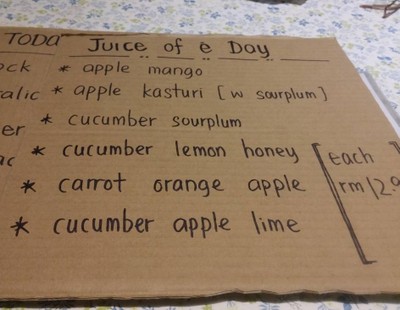 TODA Juice of e Day
* apple mango
* apple kasturi [w sourplum]
* cucumber sourplum
* cucumber lemon honey
* carrot orange apple
* cucumber apple lime
each
rm 12.